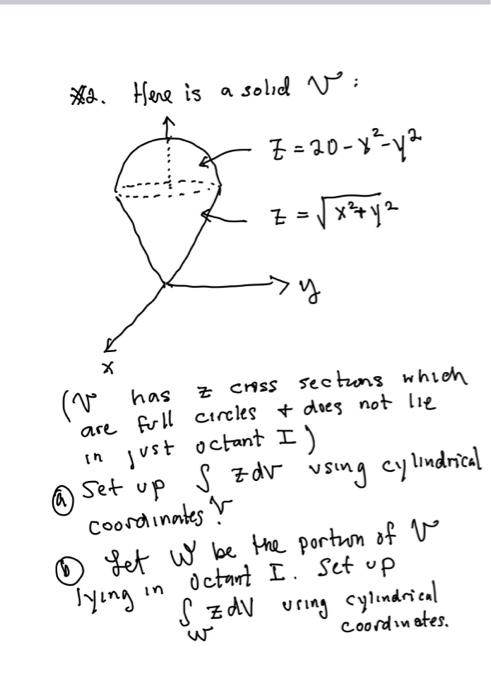 ※2. Here is a solid V :
z = 20 - x² - y²
z = √x² + y²
y
x
(V has z cross sections which
are full circles + does not lie
in just octant I)
ⓐ Set up ∫ z dV using cylindrical
V
coordinates.
ⓑ Let W be the portion of V
lying in Octant I. Set up
∫ z dV using cylindrical
W
coordinates.